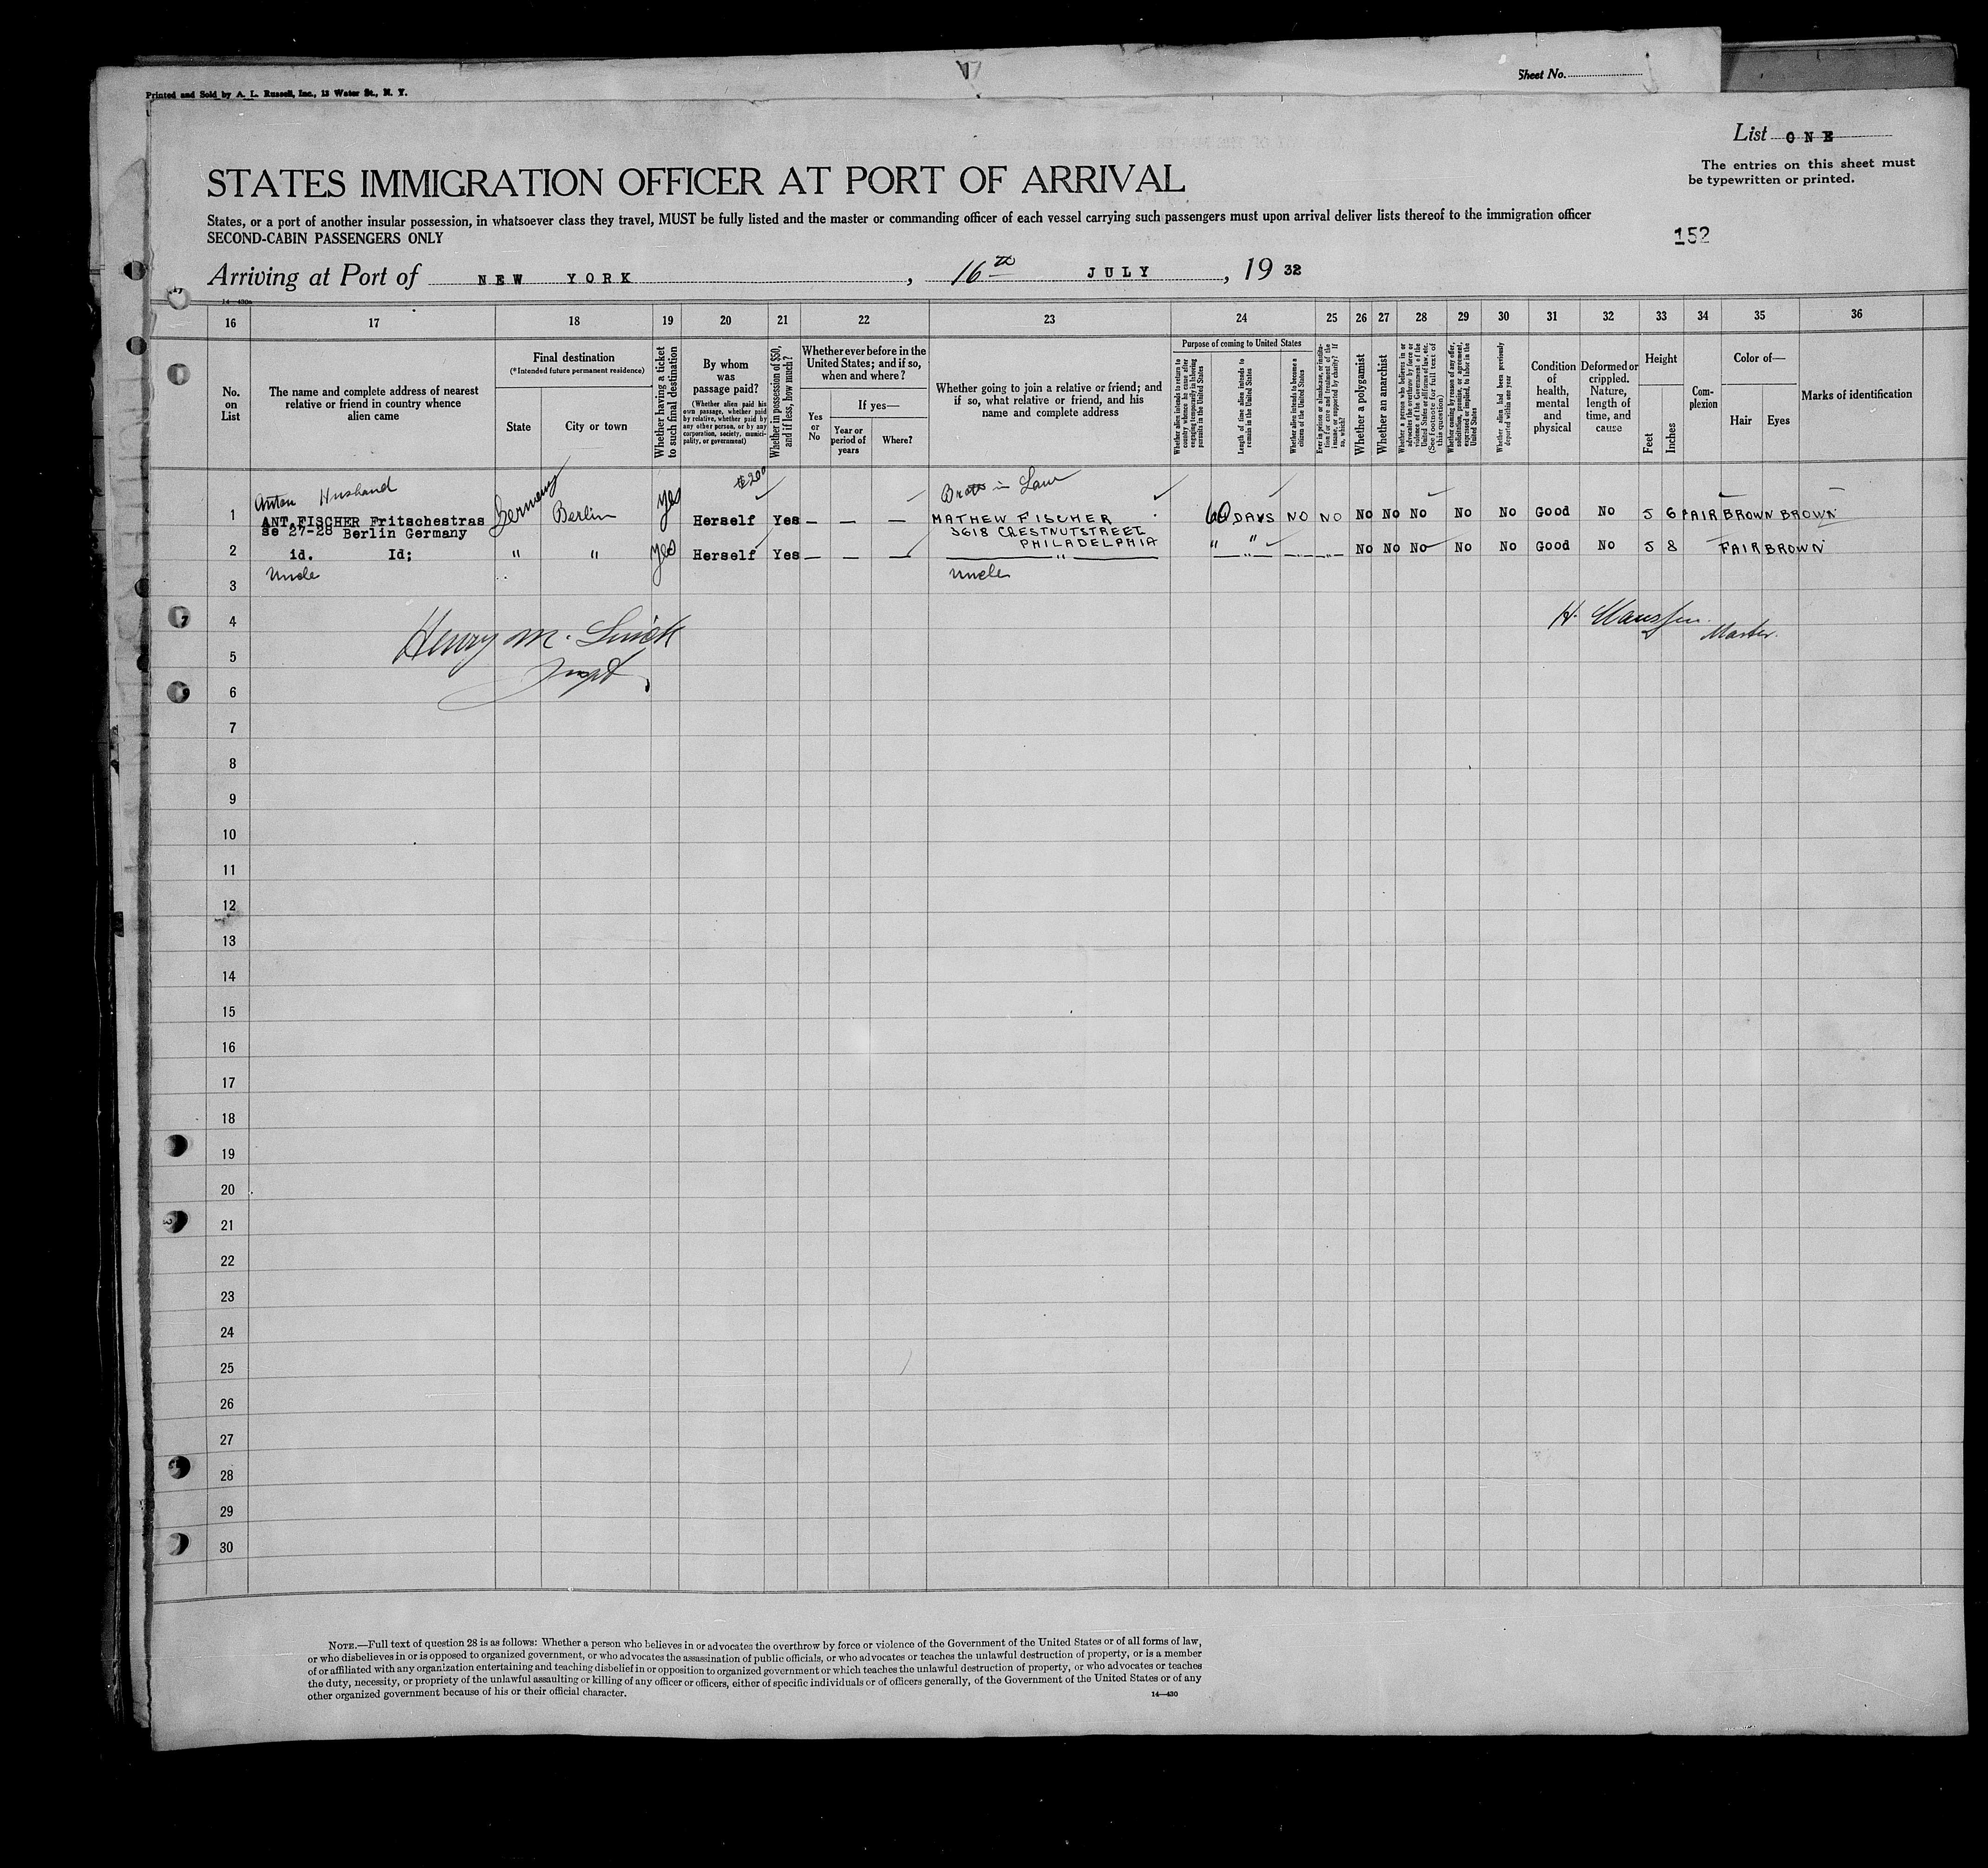 Sheet No.
Printed and Sold by A. L. Russell, Inc., 13 Water St., N. Y.
List ONE
The entries on this sheet must
be typewritten or printed.
STATES IMMIGRATION OFFICER AT PORT OF ARRIVAL
States, or a port of another insular possession, in whatsoever class they travel, MUST be fully listed and the master or commanding officer of each vessel carrying such passengers must upon arrival deliver lists thereof to the immigration officer
SECOND-CABIN PASSENGERS ONLY
152
Arriving at Port of NEW YORK, 16th JULY, 19 32
14-430a
16 17 18 19 20 21 22 23 24 25 26 27 28 29 30 31 32 33 34 35 36
No.
on
List
The name and complete address of nearest
relative or friend in country whence
alien came
Final destination
(*Intended future permanent residence)
State
City or town
Whether having a ticket
to such final destination
By whom
was
passage paid?
(Whether alien paid his
own passage, whether paid
by relative, whether paid by
any other person, or by any
corporation, society, munici-
pality, or government)
Whether in possession of $50,
and if less, how much?
Whether ever before in the
United States; and if so,
when and where?
Yes
or
No
If yes—
Year or
period of
years
Where?
Whether going to join a relative or friend; and
if so, what relative or friend, and his
name and complete address
Purpose of coming to United States
Whether alien intends to return to
country whence he came after
engaging temporarily in laboring
pursuits in the United States
Length of time alien intends to
remain in the United States
Whether alien intends to become a
citizen of the United States
Ever in prison or almshouse, or institu-
tion for care and treatment of the
insane, or supported by charity? If
so, which?
Whether a polygamist
Whether an anarchist
Whether a person who believes in or
advocates the overthrow by force or
violence of the Government of the
United States or all forms of law, etc.
(See footnote for full text of
this question)
Whether coming by reason of any offer,
solicitation, promise, or agreement,
expressed or implied, to labor in the
United States
Whether alien had been previously
deported within one year
Condition
of
health,
mental
and
physical
Deformed or
crippled.
Nature,
length of
time, and
cause
Height
Feet
Inches
Com-
plexion
Color of—
Hair
Eyes
Marks of identification
Anton Husband $200 Brother in Law
1 ANT.FISCHER Fritschestras Germany Berlin yes Herself Yes — — — MATHEW FISCHER 60 DAYS NO NO No No No No No Good No 5 6 FAIR BROWN BROWN
se 27-28 Berlin Germany 3618 CHESTNUTSTREET
PHILADELPHIA
2 id. Id; " " yes Herself Yes — — — " " " No No No No No Good No 5 8 FAIR BROWN
Uncle Uncle
3
4 H. Master.
Henry M.
5
Inspt.
6
7
8
9
10
11
12
13
14
15
16
17
18
19
20
21
22
23
24
25
26
27
28
29
30
NOTE.—Full text of question 28 is as follows: Whether a person who believes in or advocates the overthrow by force or violence of the Government of the United States or of all forms of law,
or who disbelieves in or is opposed to organized government, or who advocates the assassination of public officials, or who advocates or teaches the unlawful destruction of property, or is a member
of or affiliated with any organization entertaining and teaching disbelief in or opposition to organized government or which teaches the unlawful destruction of property, or who advocates or teaches
the duty, necessity, or propriety of the unlawful assaulting or killing of any officer or officers, either of specific individuals or of officers generally, of the Government of the United States or of any
other organized government because of his or their official character.
14—430